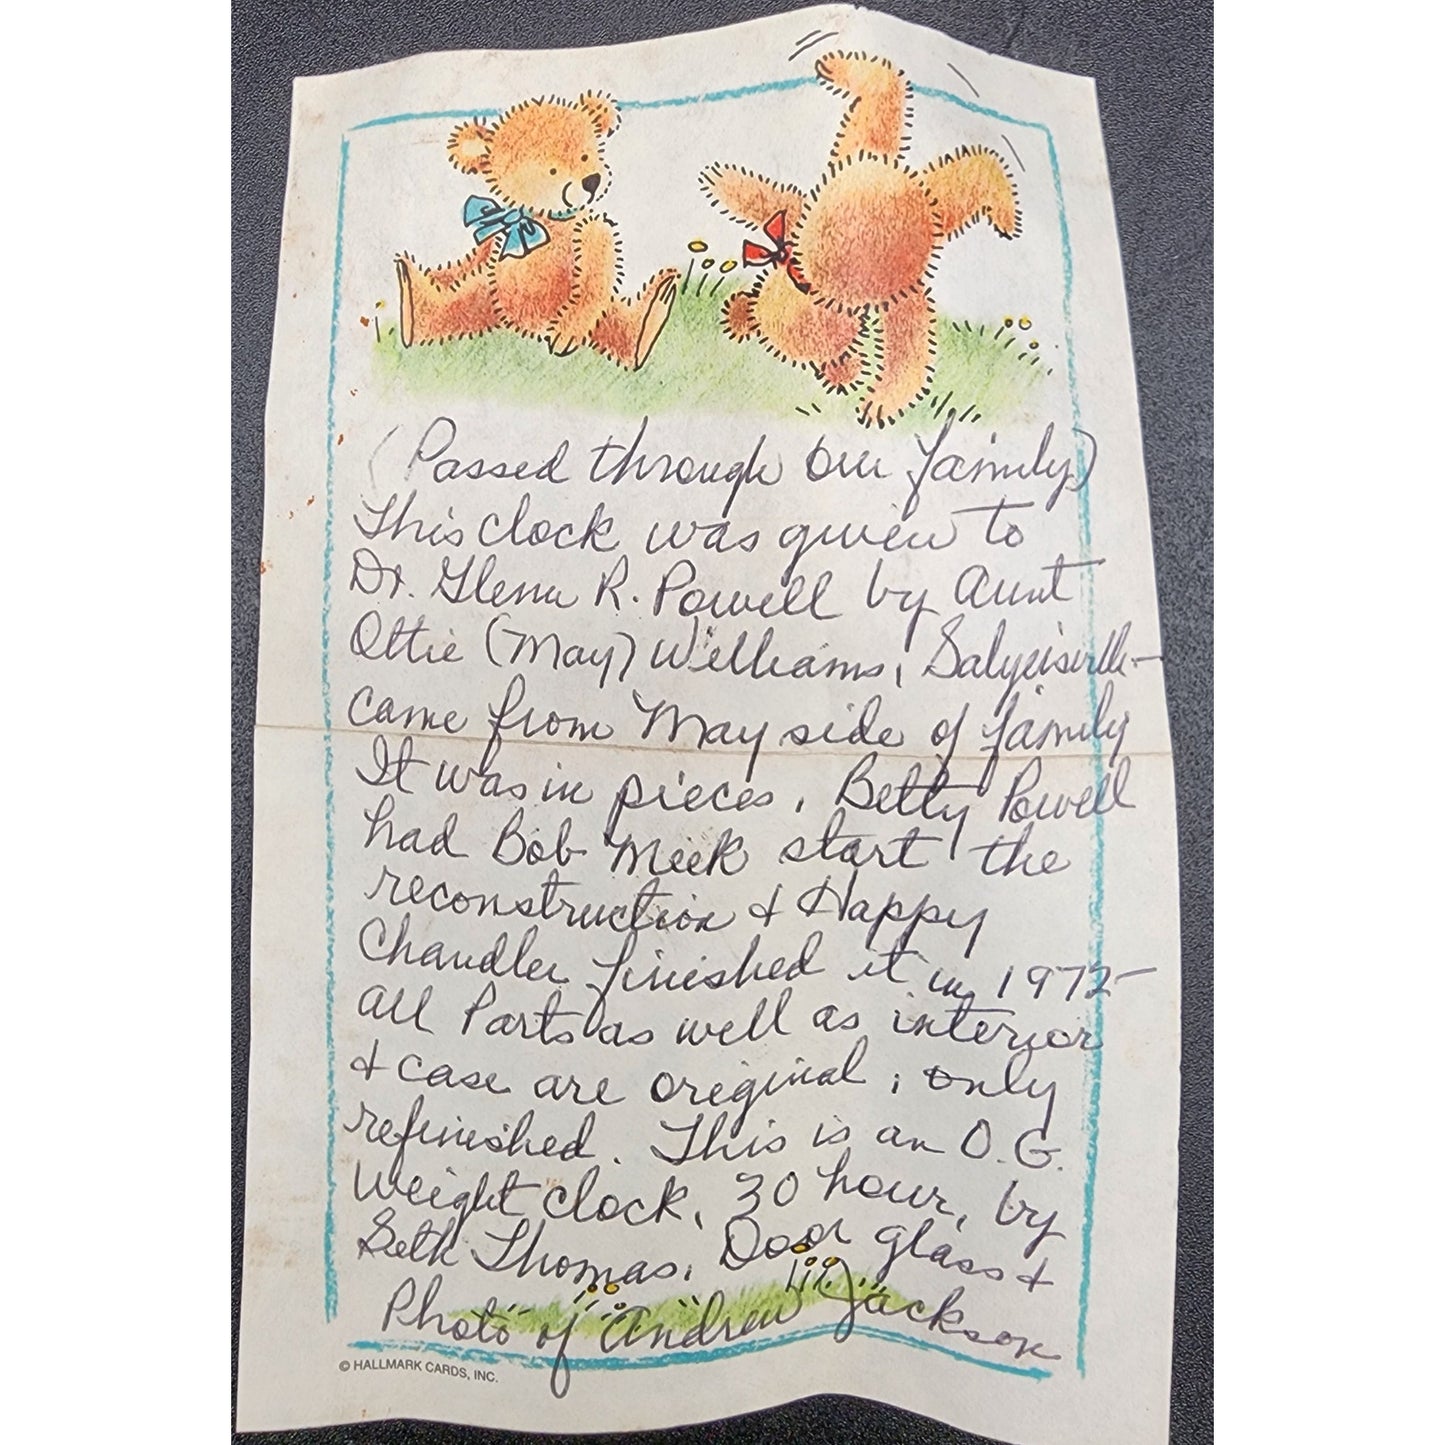 (Passed through our family)
This clock was given to
Dr. Glenn R. Powell by Aunt
Ottie (May) Williams, Salyersville-
came from May side of family
It was in pieces. Betty Powell
had Bob Meek start the
reconstruction & Happy
Chandler finished it in 1972-
all Parts as well as interior
& case are original, only
refinished. This is an O.G.
Weight clock, 30 hour, by
Seth Thomas. Door glass &
Photo of Andrew Jackson
© HALLMARK CARDS, INC.